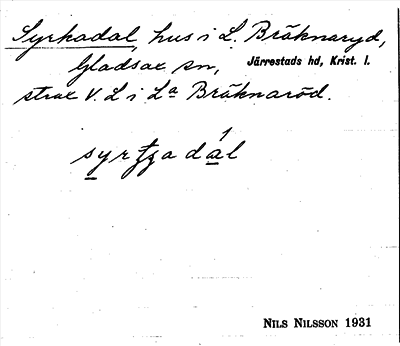 Syrkadal, hus i L. Bräknaryd,
Gladsax sn, Järrestads hd, Krist. l.
strax V. L i La Bräknaröd.
syrtzadál
NILS NILSSON 1931